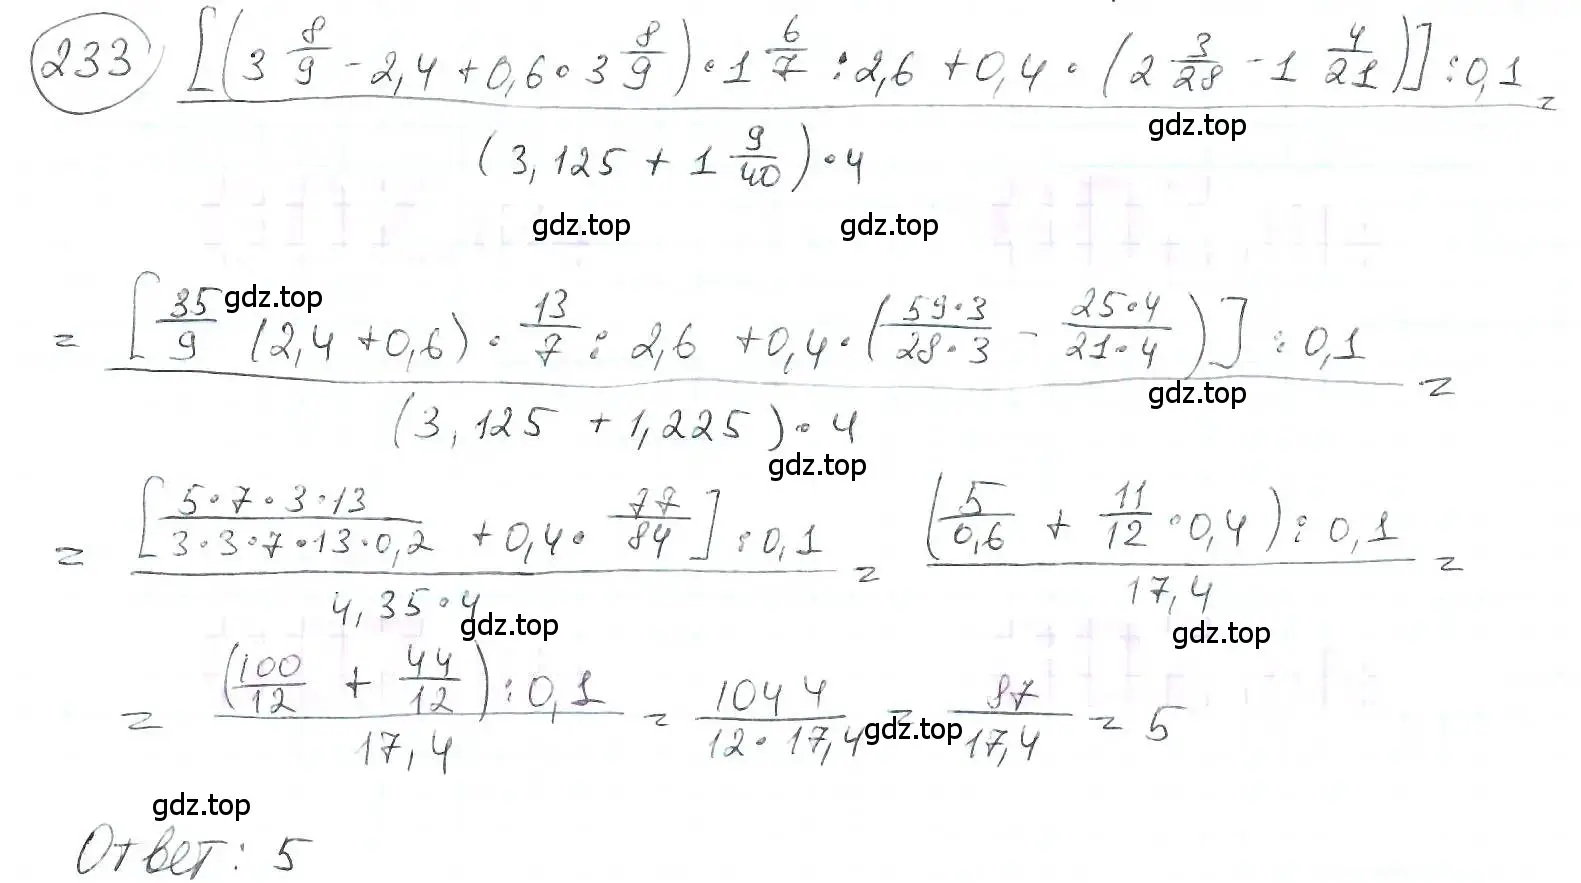 233 [(3 8/9 - 2,4 + 0,6 · 3 8/9) · 1 6/7 : 2,6 + 0,4 · (2 3/28 - 1 4/21)] : 0,1 =
gdz.top
(3,125 + 1 9/40) · 4
gdz.top gdz.top
= [35/9 (2,4 + 0,6) · 13/7 : 2,6 + 0,4 · (59·3/28·3 - 25·4/21·4)] : 0,1 =
gdz.top
gdz.top
(3,125 + 1,225) · 4
gdz.top
= [5·7·3·13/3·3·7·13·0,2 + 0,4 · 77/84] : 0,1 / 4,35·4 = (5/0,6 + 11/12 · 0,4) : 0,1 / 17,4 =
gdz.top gdz.top
= (100/12 + 44/12) : 0,1 / 17,4 = 1044/12·17,4 = 87/17,4 = 5
gdz.top
gdz.top
Ответ: 5